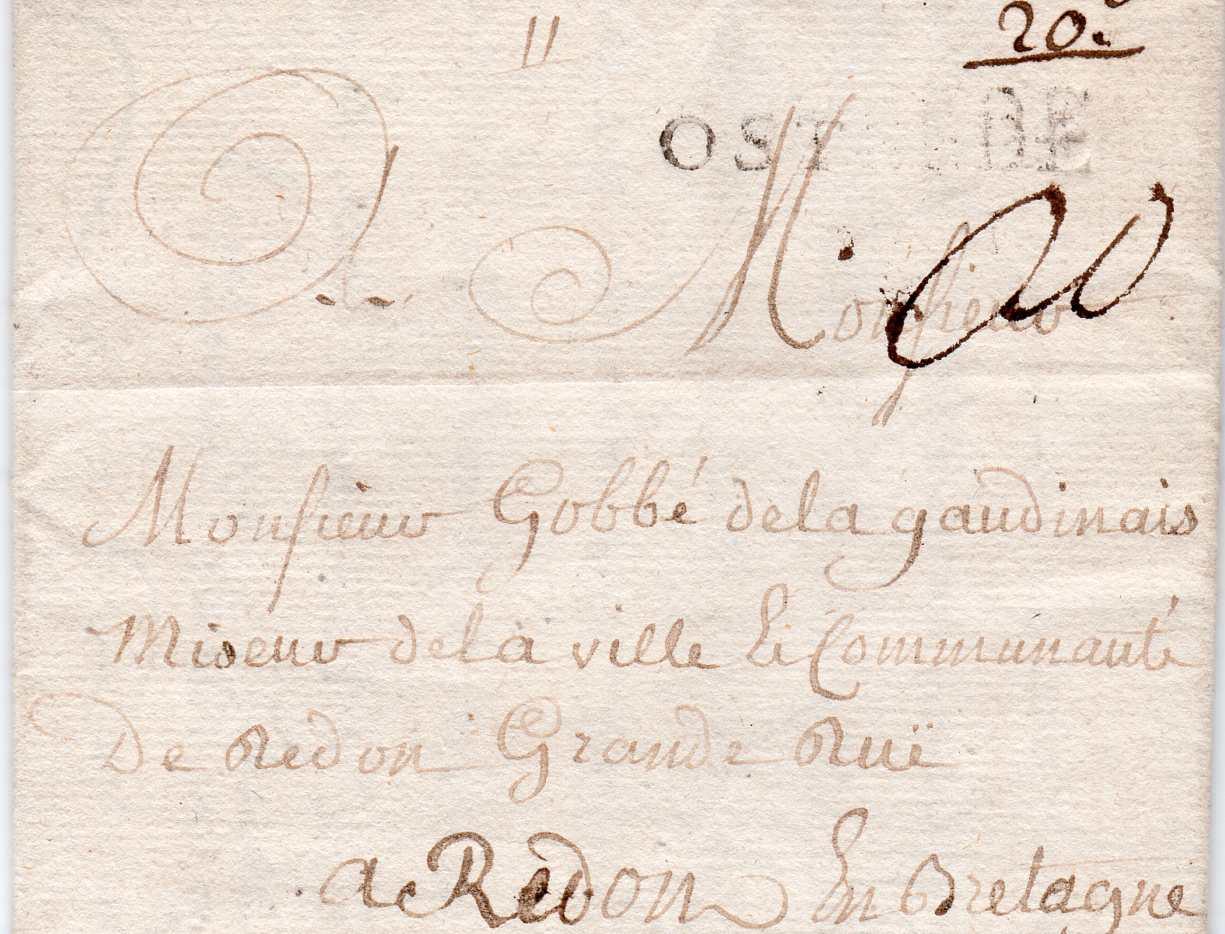 11
20.
OSTENDE
A Monsieur
Monsieur Gobbé de la gaudinais
Miseur de la ville Et Communauté
De Redon Grande Ruë
a Redon En Bretagne